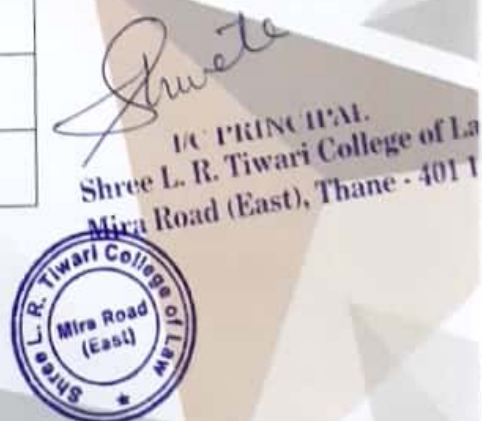 Shweta
I/C PRINCIPAL
Shree L. R. Tiwari College of La
Mira Road (East), Thane - 401 1
Shree L. R. Tiwari College of Law
Mira Road
(East)